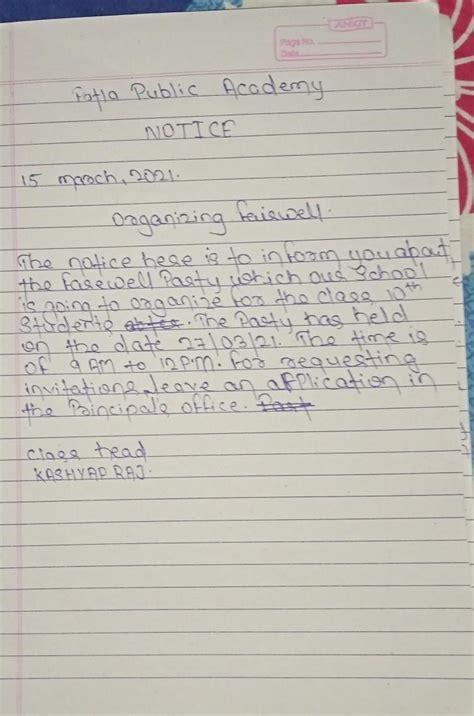 ANKIT
Page No.
Date
Public Academy
NOTICE
15 march, 2021.
Organizing fairwell.
The notice here is to inform you about
the farewell Party which our School
is going to organize for the class 10th
Students after. The Party has held
on the date 27/03/21. The time is
of 9 AM to 12 P.M. for requesting
invitations, leave an application in
the Principals office. Past
class head
KASHYAP RAJ.